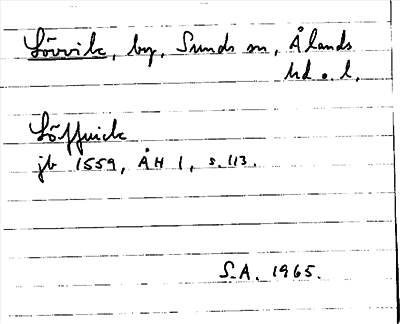 Lövvik, by, Sunds sn, Ålands
hd o. l.
Löffuick
jb 1559, ÅH 1, s. 113.
S.A. 1965.